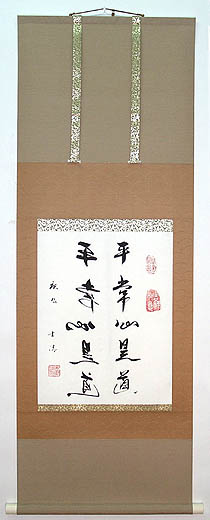 平常心是道
平常心是道